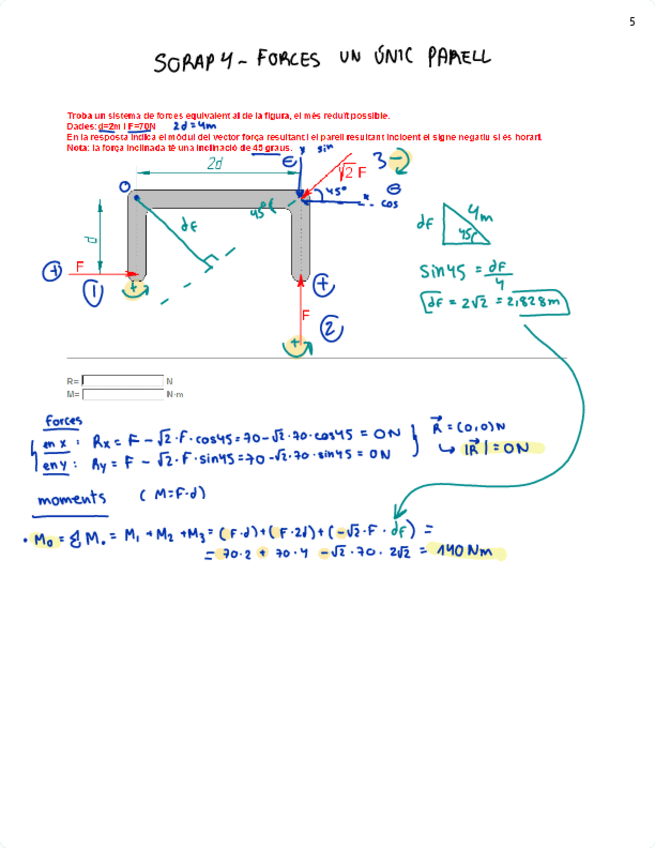 5
SORAP 4 - FORCES UN ÚNIC PARELL
Troba un sistema de forces equivalent al de la figura, el més reduït possible.
Dades: d=2m i F=70N 2d = 4m
En la resposta indica el mòdul del vector força resultant i el parell resultant incloent el signe negatiu si és horari.
Nota: la força inclinada té una inclinació de 45 graus.
sin
2d
√2 F
3
-
45°
cos
O
45°
dF
d
F
+
1
+
+
F
2
+
dF
4m
45°
sin45 = dF/4
dF = 2√2 = 2,828m
R= N
M= N·m
forces
en x : Rx = F - √2·F·cos45 = 70-√2·70·cos45 = 0N
en y : Ry = F - √2·F·sin45 = 70-√2·70·sin45 = 0N
R = (0,0)N
↳ |R| = 0N
moments (M=F·d)
• M₀ = Σ M₀ = M₁ + M₂ + M₃ = (F·d)+(F·2d)+(-√2·F·dF) =
= 70·2 + 70·4 -√2·70·2√2 = 140 Nm